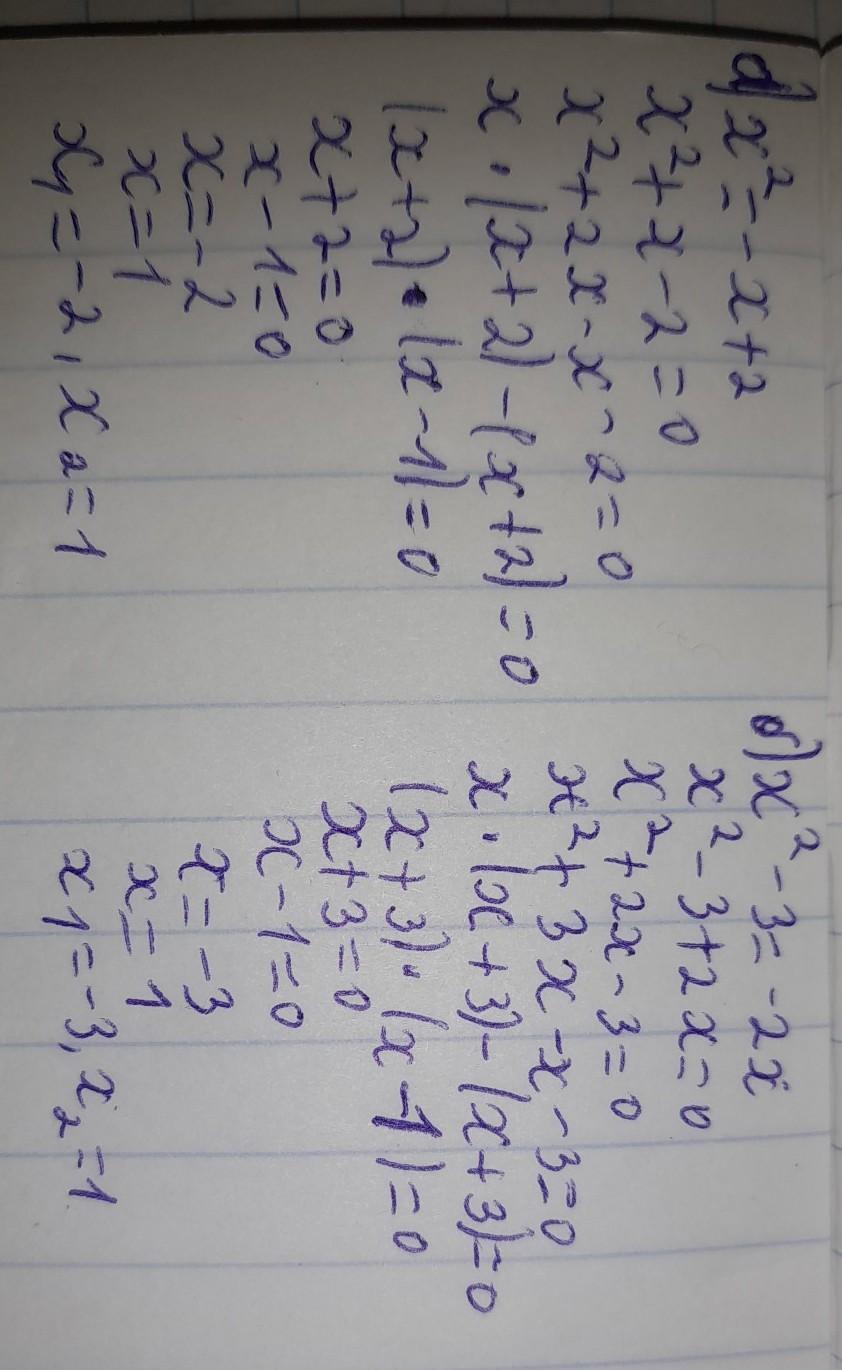 а) x² = -x+2
x²+x-2=0
x²+2x-x-2=0
x·(x+2)-(x+2)=0
(x+2)·(x-1)=0
x+2=0
x-1=0
x=-2
x=1
x₁=-2, x₂=1
б) x²-3=-2x
x²-3+2x=0
x²+2x-3=0
x²+3x-x-3=0
x·(x+3)-(x+3)=0
(x+3)·(x-1)=0
x+3=0
x-1=0
x=-3
x=1
x1=-3, x₂=1